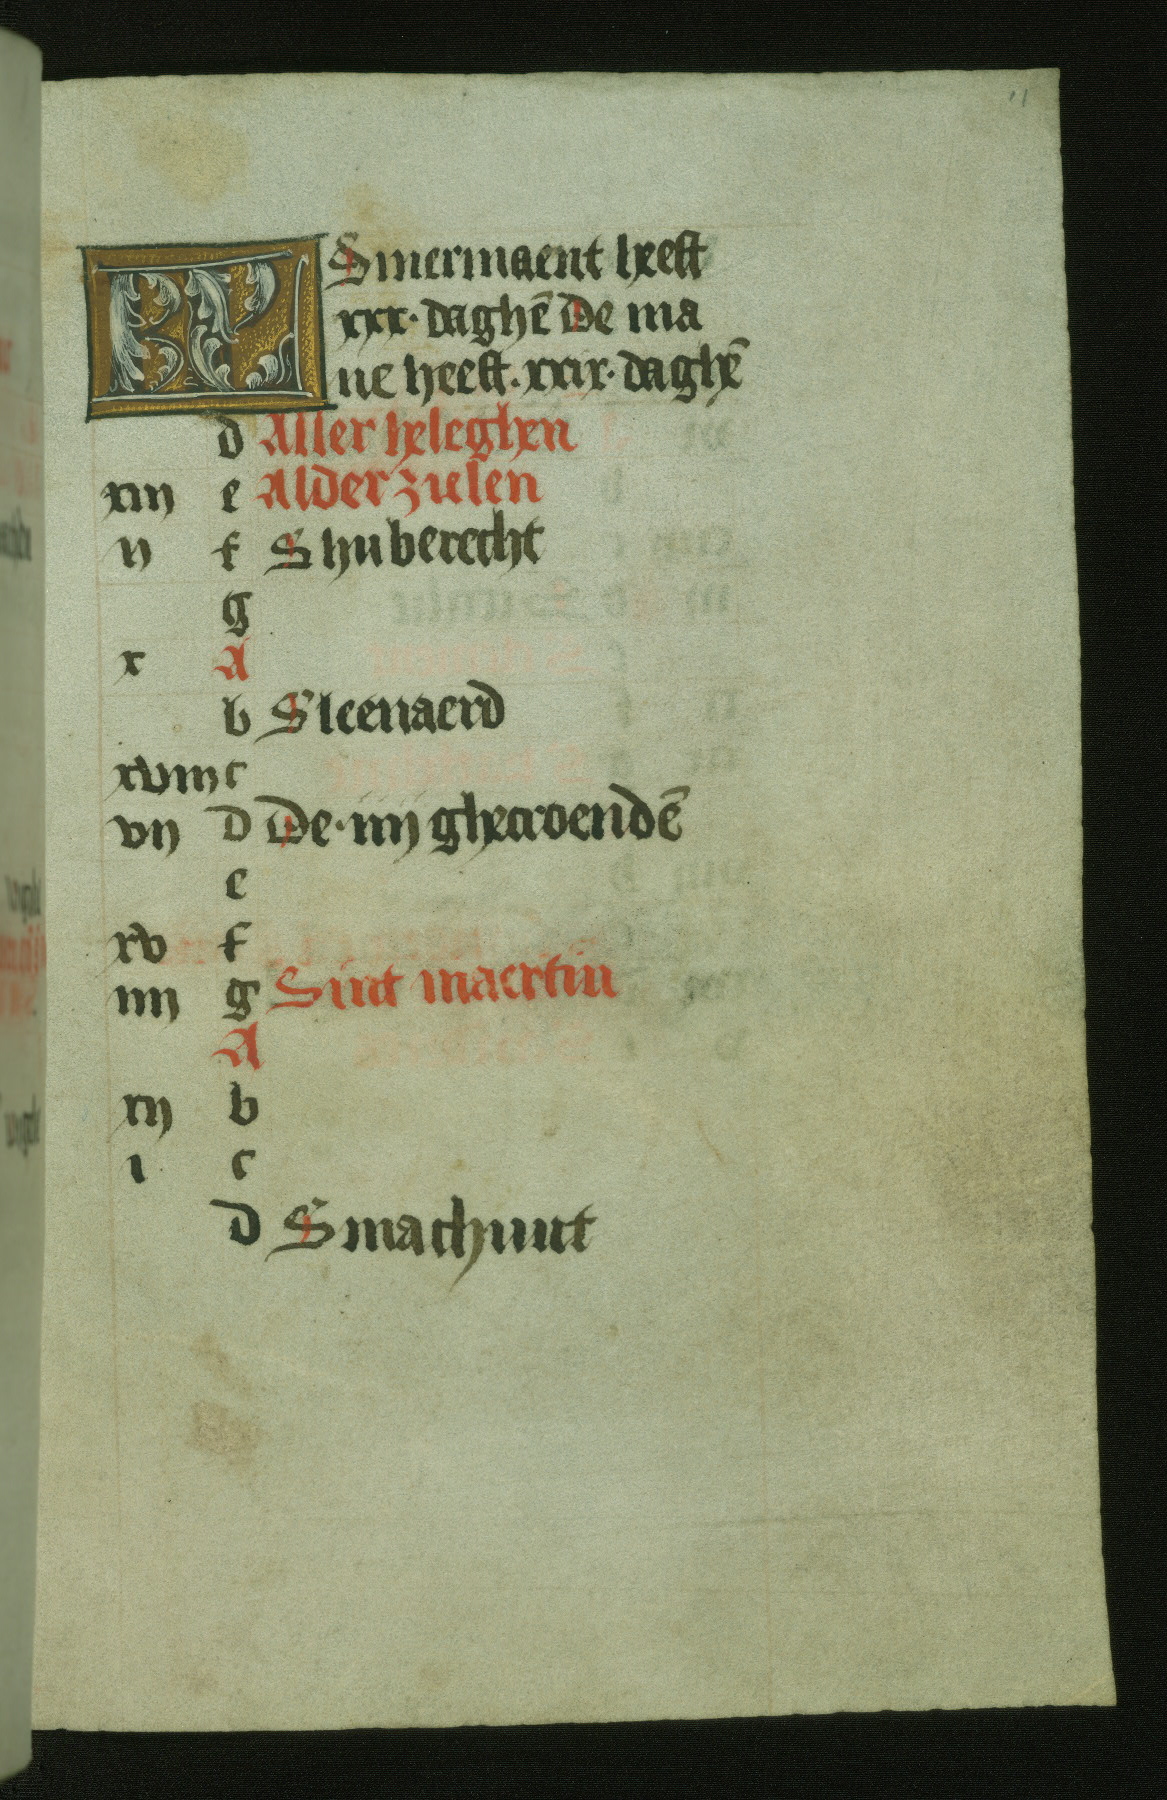 KL Smermaent heeft
xxx· daghē De ma
ne heeft. xxix· daghē
d Aller heleghen
xiij e Alder zielen
ij f S huberecht
g
x A
b S leenaerd
xviij c
vij d De· iiij ghecroendē
e
xv f
iiij g Sint maertin
A
xij b
i c
d S machuut